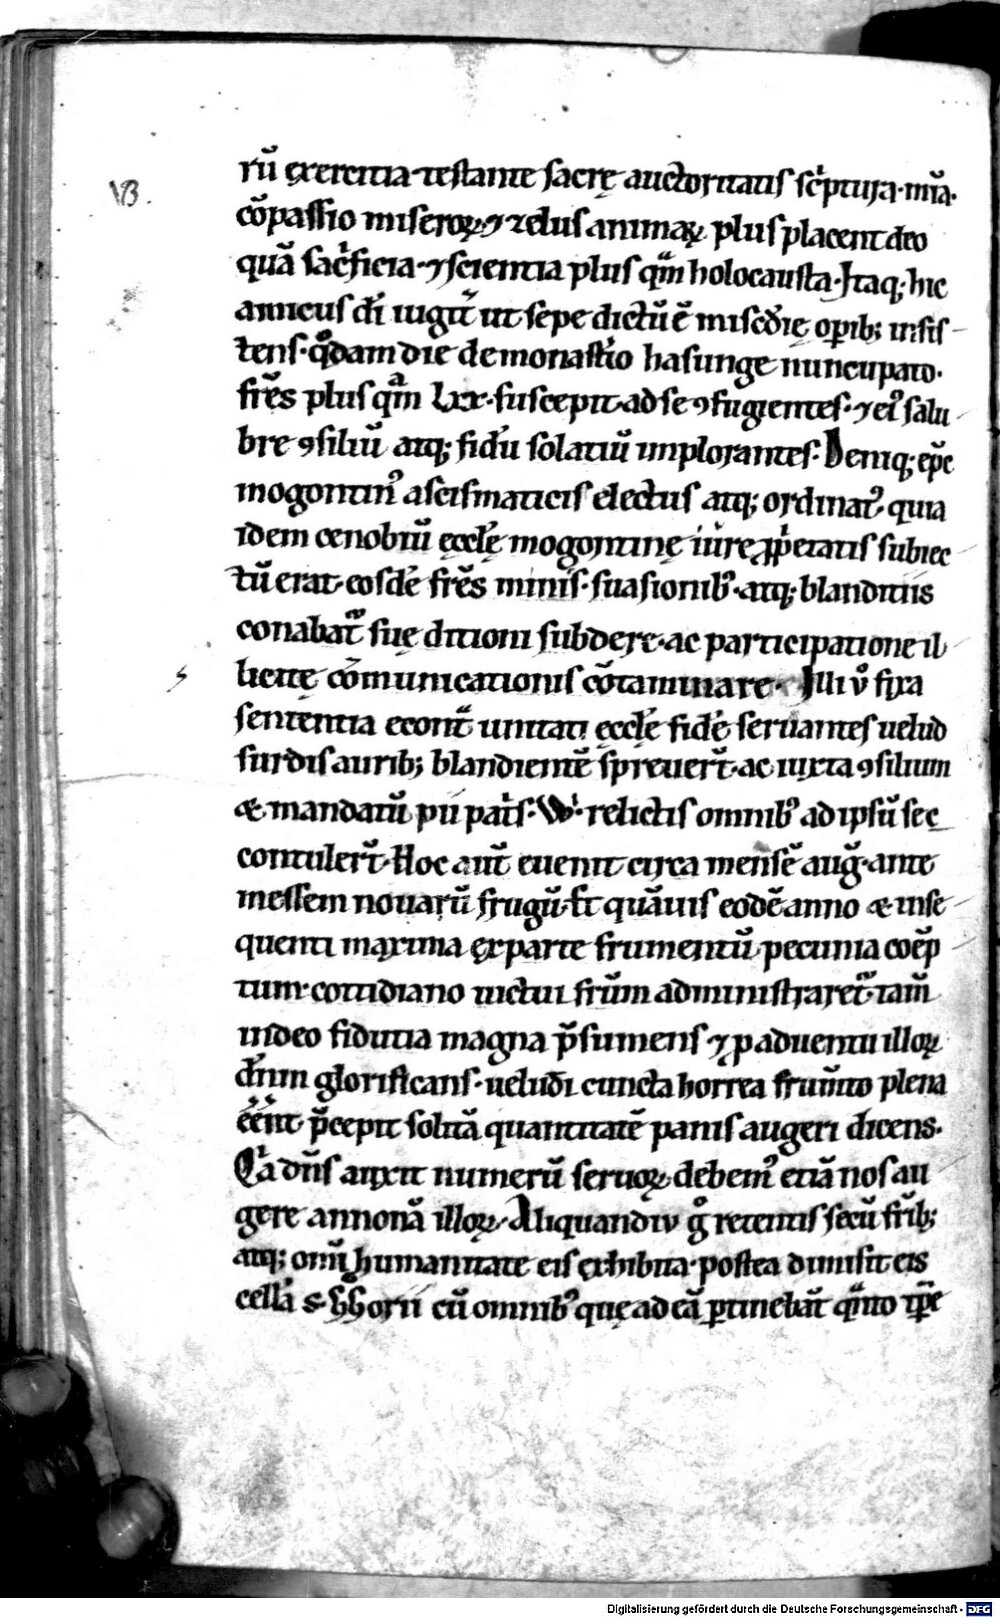 VB.
rū exercitia testante sacrę auctoritatis sc̓ptura· mia·
cōpassio miseroꝝ ⁊ zelus animaꝝ plus placent deo
quā sac̓ficia· ⁊ scientia plus qm holocausta. Itaq; hic
amicus dī iugit̄ ut sepe dictū ē misc̄dię opib; insis-
tens· qᵒdam die de monastio hasunge nuncupato·
frēs plus qm Lxx· suscepit ad se ꝯfugientes· ⁊ ei᷒ salu
bre ꝯsiliū atq; fidū solatiū implorantes. Deniq; ep̄c
mogontin᷒ a scismaticis electus atq; ordinat᷒· quia
idem cenobiū ęcclę mogontinę iure ꝓpetatis subiec
tū erat· eosdē frēs minis· suasionib᷒ atq; blanditiis
conabat̄ suę ditioni subdere· ac participatione il
licitę cōmunicationis cōtaminare. Illi v̊ fixa
sententia econt̄ unitati ęcclę fidē seruantes uelud
surdis aurib; blandientē spreuer̄t· ac iuxta ꝯsilium
& mandatū pii pat̓s· W· relictis omnib᷒ ad ipsū sec
contuler̄t. Hoc aut̄ euenit circa mensē aug̅· ante
messem nouarū frugū. Et quāuis eodē anno & inse-
quenti maxima ex parte frumentū pecunia coēp
tum· cottidiano uictui frūm administraret̄· tam̄
in deo fidutia magna p̄sumens ⁊ ꝑ aduentu illoꝝ
dn̄m glorificans· uelud i cuncta horrea frum̄to plena
eēnt p̄cepit solitā quantitatē panis augeri dicens·
Qa dn̄s auxit numerū seruoꝝ debem᷒ etiā nos au
gere annonā illoꝝ. Aliquandiu ᵍ retentis secū frīb;
atq; omī humanitate eis exhibita· postea dimisit eis
cellā s· GGorii cū omnib᷒ quę ad eā ꝑtinebāt qmno ip̄e